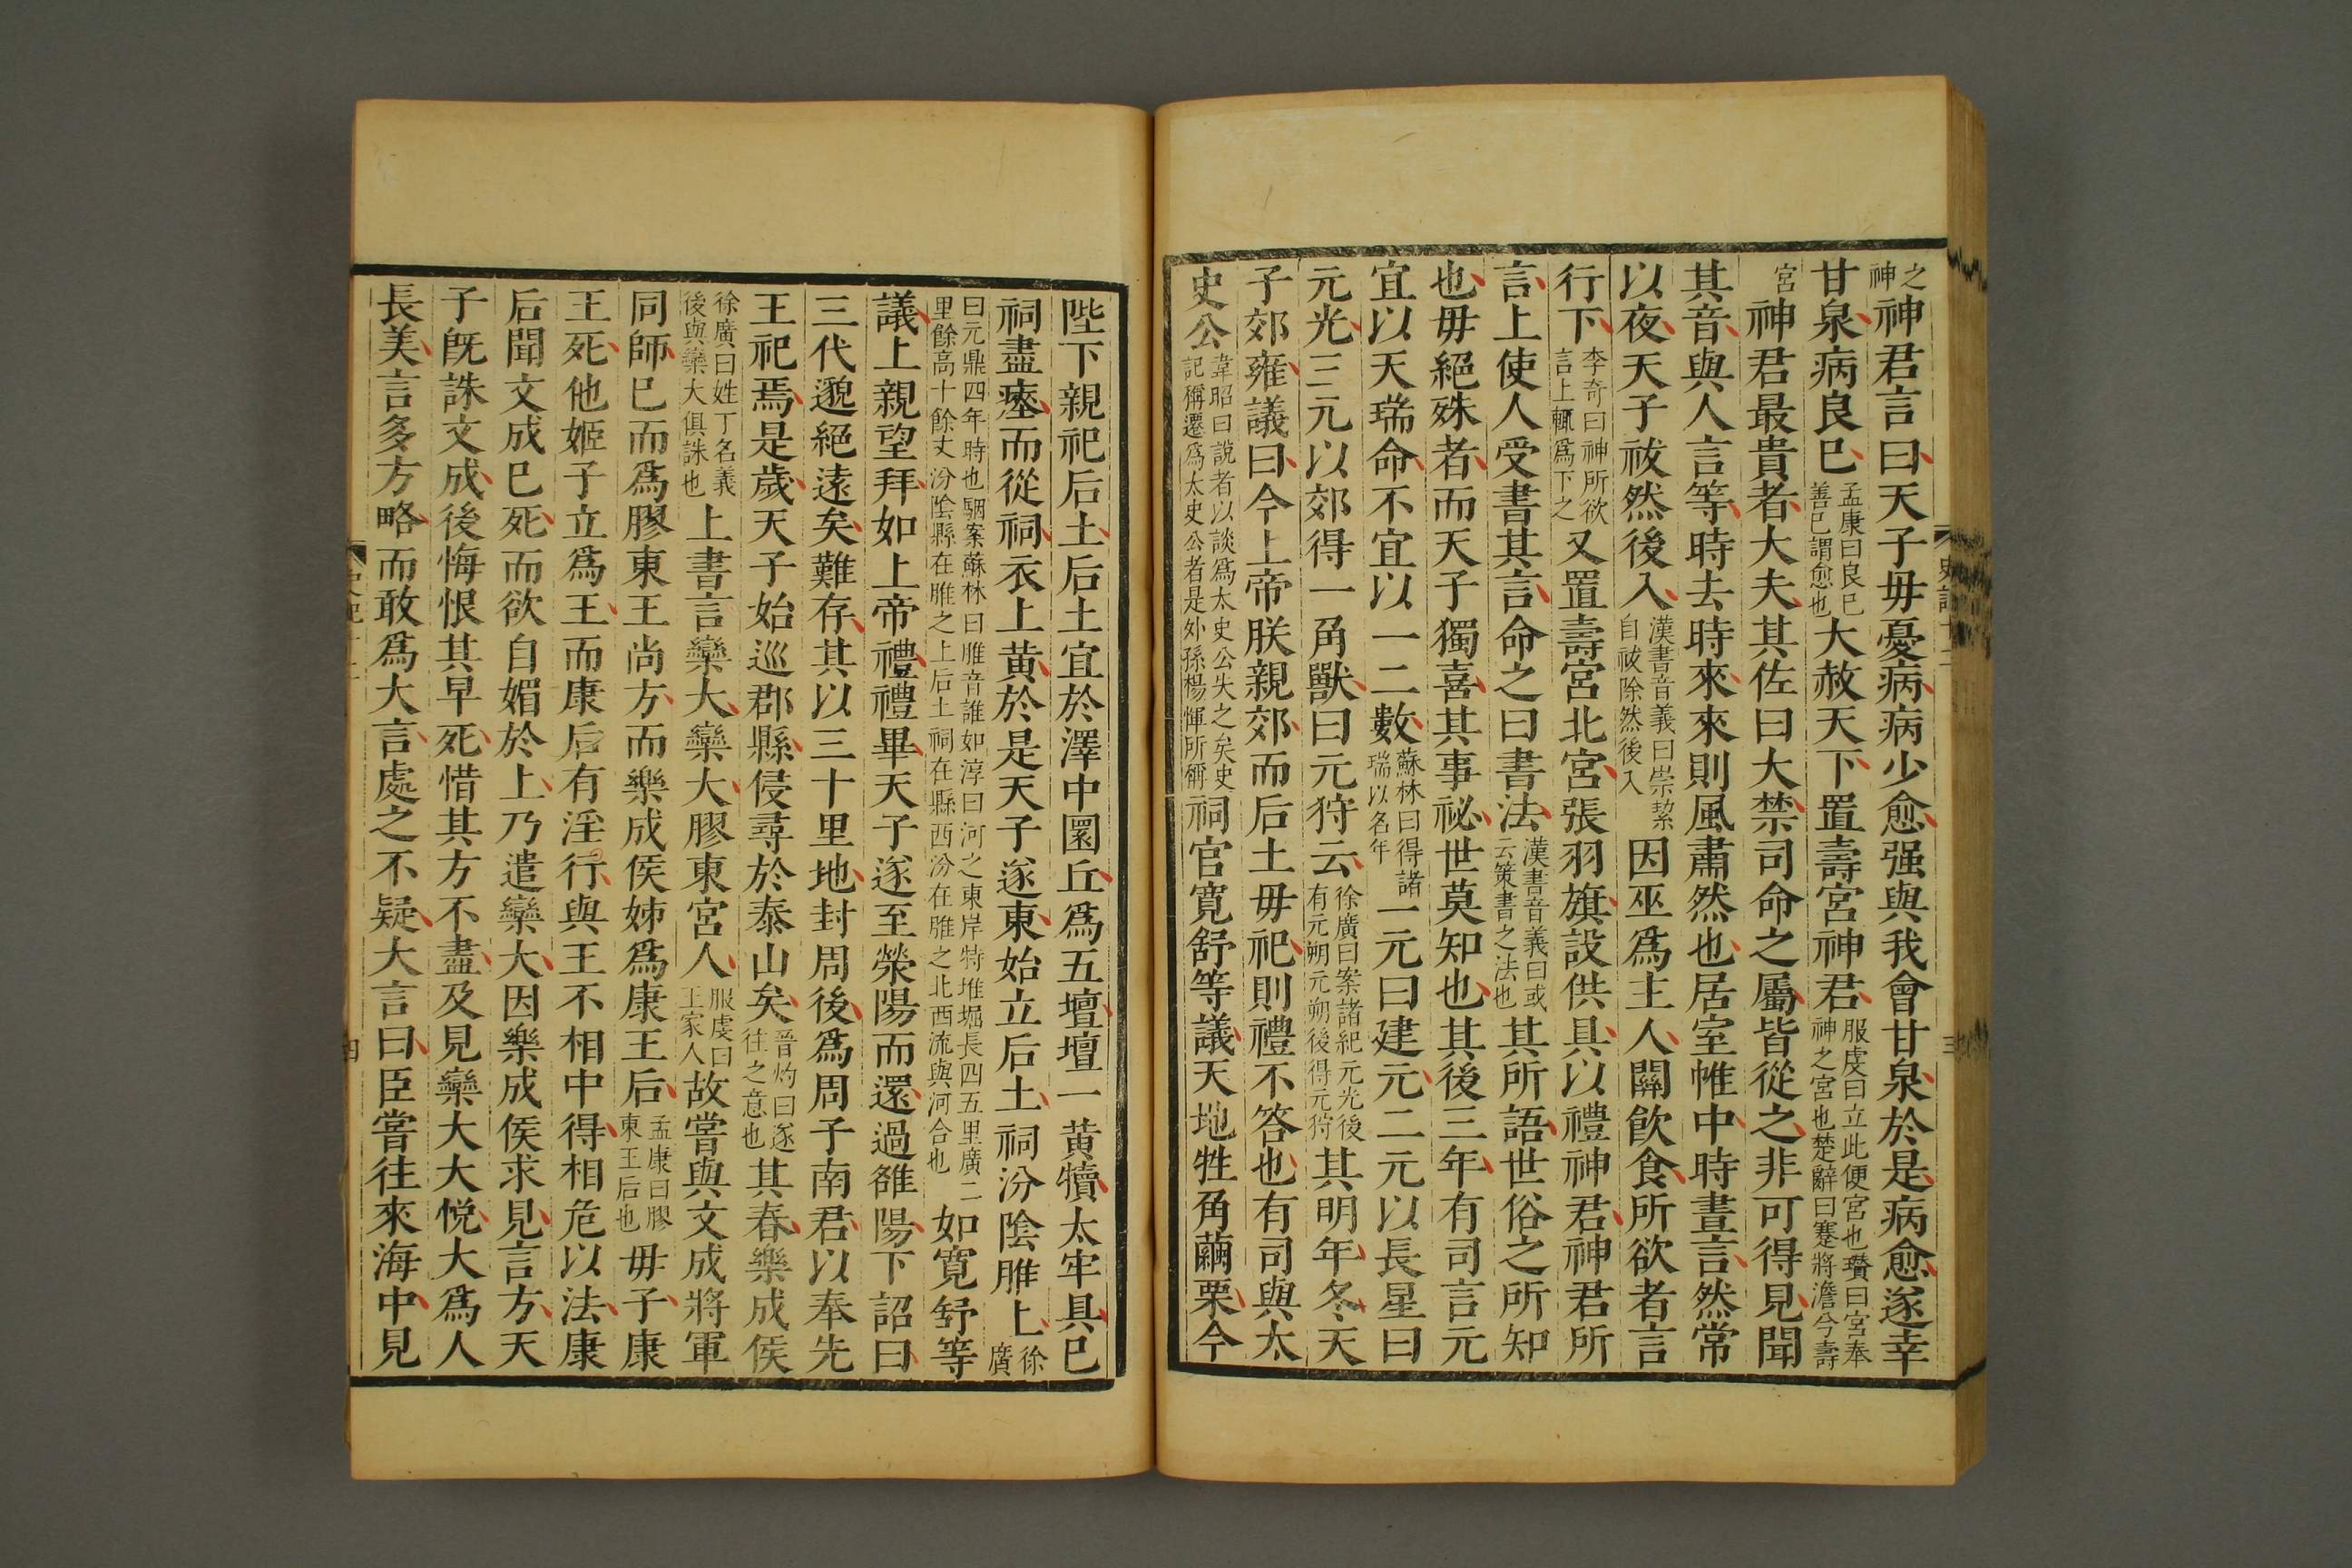 之神神君言曰天子毋憂病病少愈强與我會甘泉於是病愈遂幸
甘泉病良已孟康曰良已善已謂愈也大赦天下置壽宮神君服虔曰立此便宮也瓚曰宮奉神之宮也楚辭曰蹇將澹兮壽
宮神君最貴者大夫其佐曰大禁司命之屬皆從之非可得見聞
其音與人言等時去時來來則風肅然也居室帷中時晝言然常
以夜天子祓然後入漢書音義曰崇絜自祓除然後入因巫爲主人關飲食所欲者言
行下李奇曰神所欲言上輒爲下之又置壽宮北宮張羽旗設供具以禮神君神君所
言上使人受書其言命之曰書法漢書音義曰或云策書之法也其所語世俗之所知
也毋絕殊者而天子獨喜其事祕世莫知也其後三年有司言元
宜以天瑞命不宜以一二數蘇林曰得諸瑞以名年一元曰建元二元以長星曰
元光三元以郊得一角獸曰元狩云徐廣曰案諸紀元光後有元朔元朔後得元狩其明年冬天
子郊雍議曰今上帝朕親郊而后土毋祀則禮不答也有司與太
史公韋昭曰說者以談爲太史公失之矣史記稱遷爲太史公者是外孫楊惲所稱祠官寬舒等議天地牲角繭栗今
陛下親祀后土后土宜於澤中圜丘爲五壇壇一黃犢太牢具已
祠盡瘞而從祠衣上黃於是天子遂東始立后土祠汾陰脽上徐廣
曰元鼎四年時也駰案蘇林曰脽音誰如淳曰河之東岸特堆堀長四五里廣二里餘高十餘丈汾陰縣在脽之上后土祠在縣西汾在脽之北西流與河合也如寬舒等
議上親望拜如上帝禮禮畢天子遂至滎陽而還過雒陽下詔曰
三代邈絕遠矣難存其以三十里地封周後爲周子南君以奉先
王祀焉是歲天子始巡郡縣侵尋於泰山矣晉灼曰遂往之意也其春樂成侯
徐廣曰姓丁名義後與欒大俱誅也上書言欒大欒大膠東宮人服虔曰王家人故嘗與文成將軍
同師已而爲膠東王尚方而樂成侯姊爲康王后孟康曰膠東王后也毋子康
王死他姬子立爲王而康后有淫行與王不相中得相危以法康
后聞文成已死而欲自媚於上乃遣欒大因樂成侯求見言方天
子旣誅文成後悔恨其早死惜其方不盡及見欒大大悅大爲人
長美言多方略而敢爲大言處之不疑大言曰臣嘗往來海中見